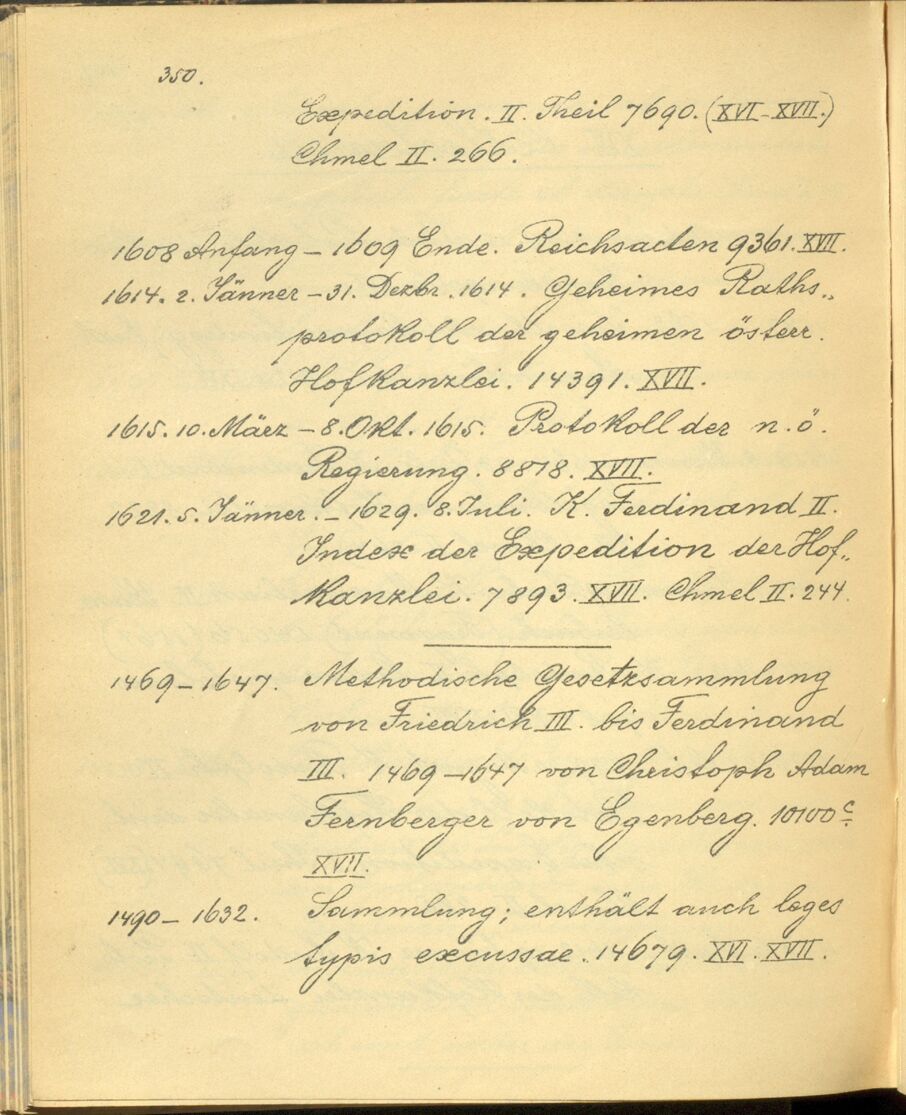 350.
Expedition. II. Theil 7690. (XVI-XVII.)
Chmel II. 266.
1608 Anfang – 1609 Ende. Reichsacten 9361. XVII.
1614. 2. Jänner – 31. Dezbr. 1614. Geheimes Raths„
protokoll der geheimen österr.
Hofkanzlei. 14391. XVII.
1615. 10. März – 8. Okt. 1615. Protokoll der n. ö.
Regierung. 8818. XVII.
1621. 5. Jänner. – 1629. 8. Juli. K. Ferdinand II.
Index der Expedition der Hof„
kanzlei. 7893. XVII. Chmel II. 244.
1469 – 1647. Methodische Gesetzsammlung
von Friedrich III. bis Ferdinand
III. 1469 – 1647 von Christoph Adam
Fernberger von Egenberg. 10100c.
XVII.
1490 – 1632. Sammlung; enthält auch leges
typis excussae. 14679. XVI. XVII.